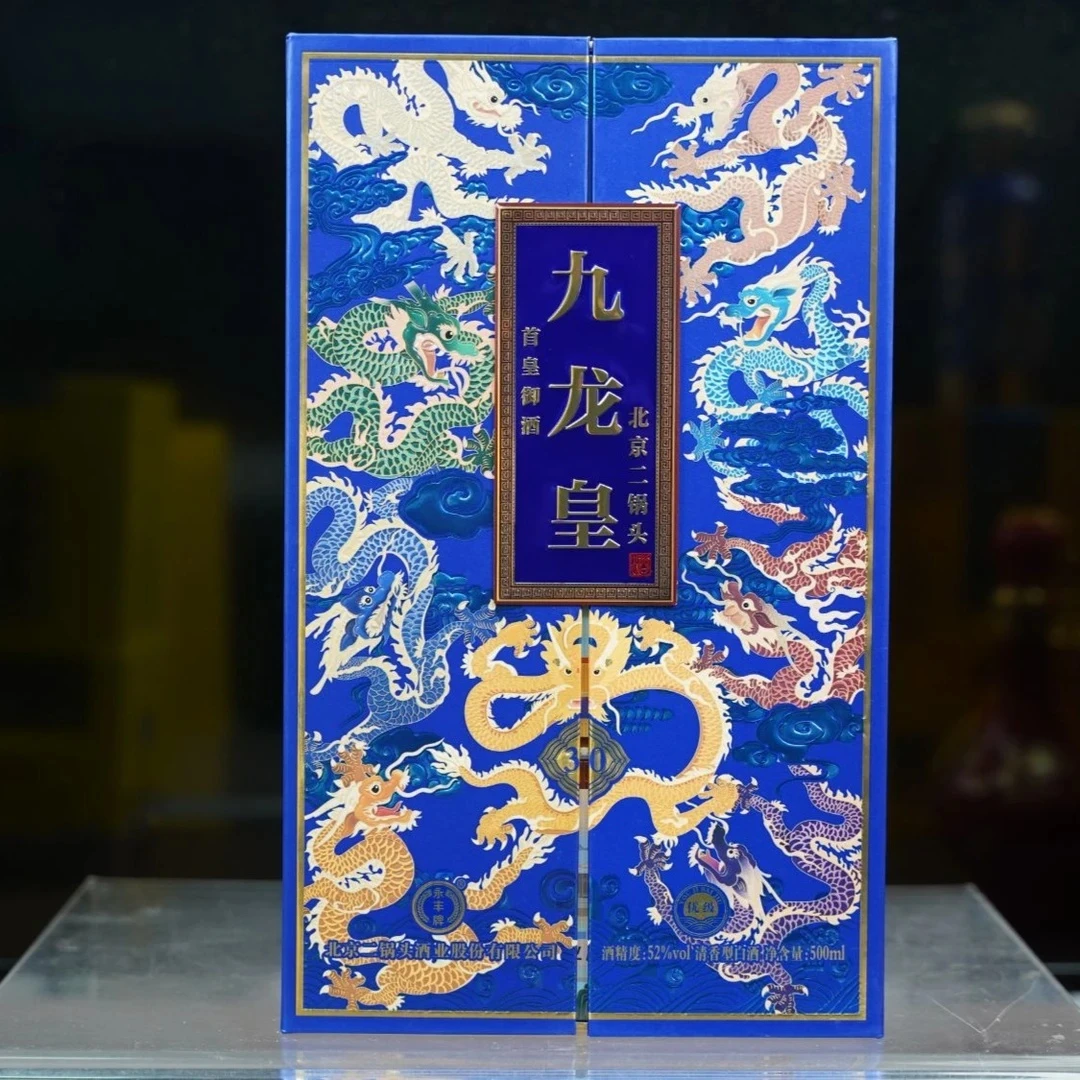 九龙皇
首皇御酒
北京二锅头
30
永丰牌
优级
北京二锅头酒业股份有限公司
酒精度:52%vol 清香型白酒 净含量:500ml